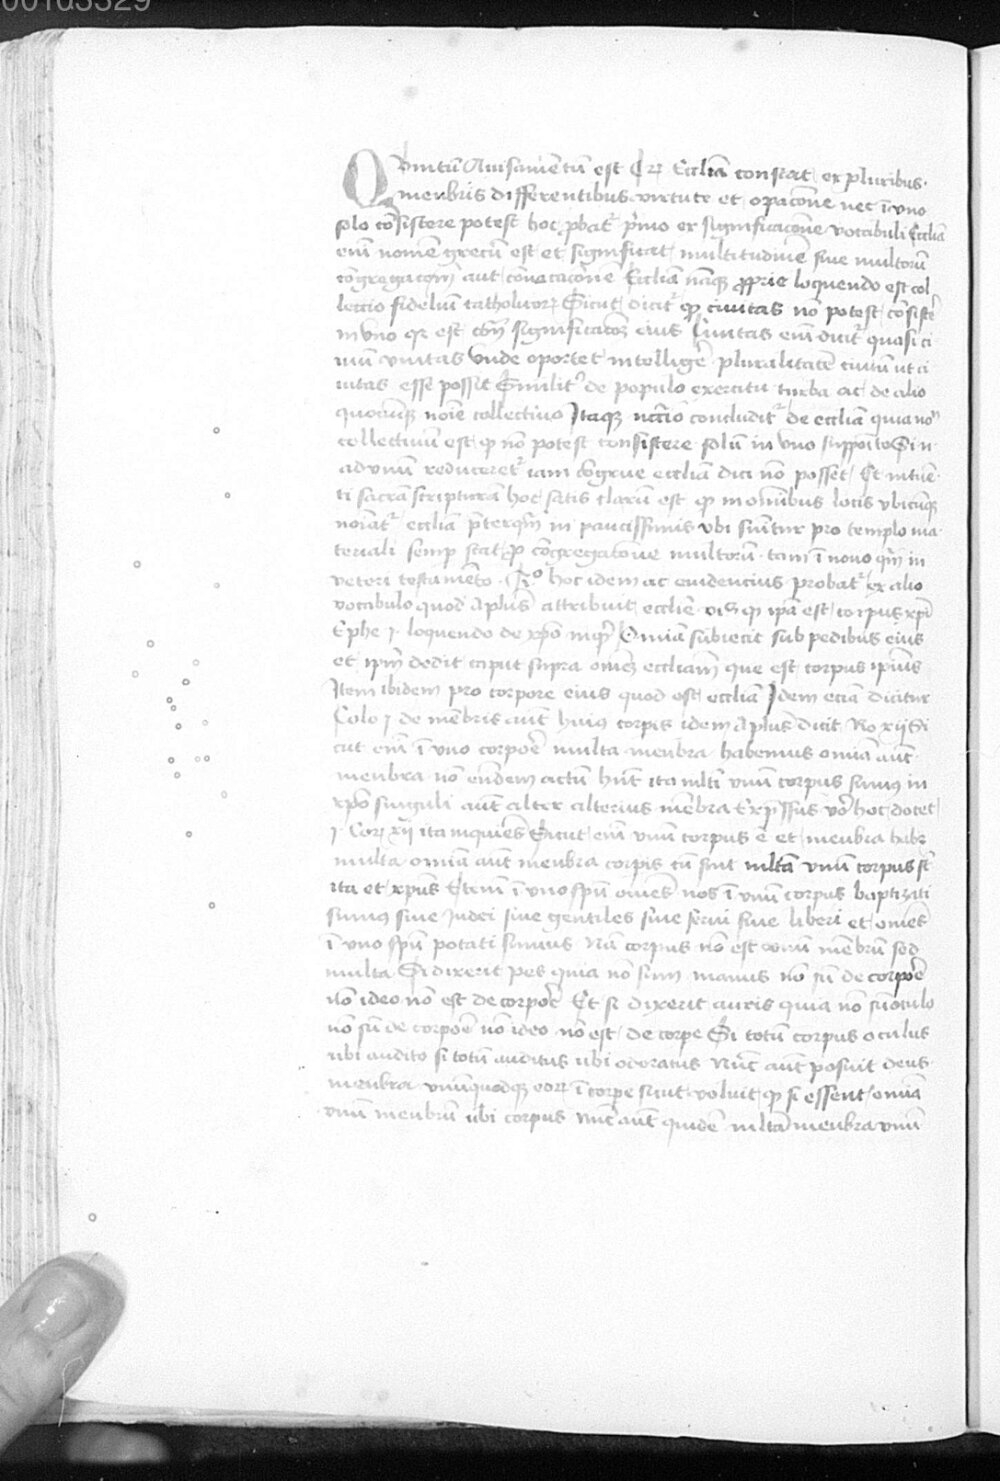 00103329
Quintū Auisamentū est Qꝛ Eccliā constat ex pluribus
menbris differentibus virtute et opacōne nec ī vno
solo cōsistere potest hoc ꝓbatʳ pʳmo ex significacōne vocabuli Eccliā
enī nomē grecū est et significat multitudinē siue multorū
cōgregacōem aut cōuocacōne Eccliā nāqꝫ ꝓprie loquendo est col
leccio fideliū catholicorꝝ Sicut dicitʳ ꝙ ciuitas nō potest cōsistē
in vno qꝛ est significatōꝫ eius Ciuitas enī dicitʳ quasi ci
uiū vnitas vnde oportet intelligē pluralitatē ciuiū ut ci
uitas esse possit Similitʳ de populo exercitu turba ac de alio
quocūqꝫ noīe collectiuo Itaqꝫ concluditʳ de eccliā quia nōᵐ
collectiuū est ꝙ nō potest consistere solū in vno supposito Si n
ad vnū reduceretʳ iam cōgrue eccliā dici nō posset Et intuē
ti sacrā scripturā hoc satis clarū est ꝙ in omībus locis vbicūqꝫ
noīatʳ eccliā pʳterqᵐ in paucissimis vbi sumitur pro templo ma
teriali semp stat ꝓ cōgregatōne multorū tam ī nouo qᵐ in
veteri testamēto hoc idem ac euidencius probatʳ ex alio
vocabulo quod Aplus attribuit ecclie ꝙ ipā est corpus xpī
Ephe j loquendo de xpō inqᵗ Omīa subiecit sub pedibus eius
et ipm̄ dedit caput supra omēs eccliam que est corpus ipīus
Item ibidem pro corpore eius quod est eccliā Idem eciā dicitur
Colo j de mēbris aūt huius corpis idem Aplus dicit Ro xij Si
cut enī ī vno corpoē multa menbra habemus omīa aūt
menbra nō eūdem actū hn̄t ita mlti vnū corpus sumꝰ in
xpō singuli aūt alter alterius mēbra Expʳssius vo hoc docet
j Coꝝ xij ita inquiēs Sicut enī vnū corpus ē et menbra habꝫ
multa omīa aūt menbra corpis cū sint mltā vnū corpus st
ita et xpūs Etenī ī vno spū omēs nos ī vnū corpus baptizati
sumꝰ siue Iudei siue gentiles siue serui siue liberi et omēs
ī vno spū potati sumus Nā corpus nō est vnū mēbrū sed
multa Si dixerit pes quia nō sum manus nō sū de corpoē
nō ideo nō est de corpoē Et si dixerit auris quia nō sū oculꝰ
nō sū de corpoē nō ideo nō est de corpe Si totū corpus oculus
ubi audito si totū auditus ubi odoratus Nūc aūt posuit deus
menbra vnūquodqꝫ eoꝝ ī corpe sicut voluit ꝙ si essent omīa
vnū menbrū ubi corpus nūc aūt quidē mltā menbra vnū